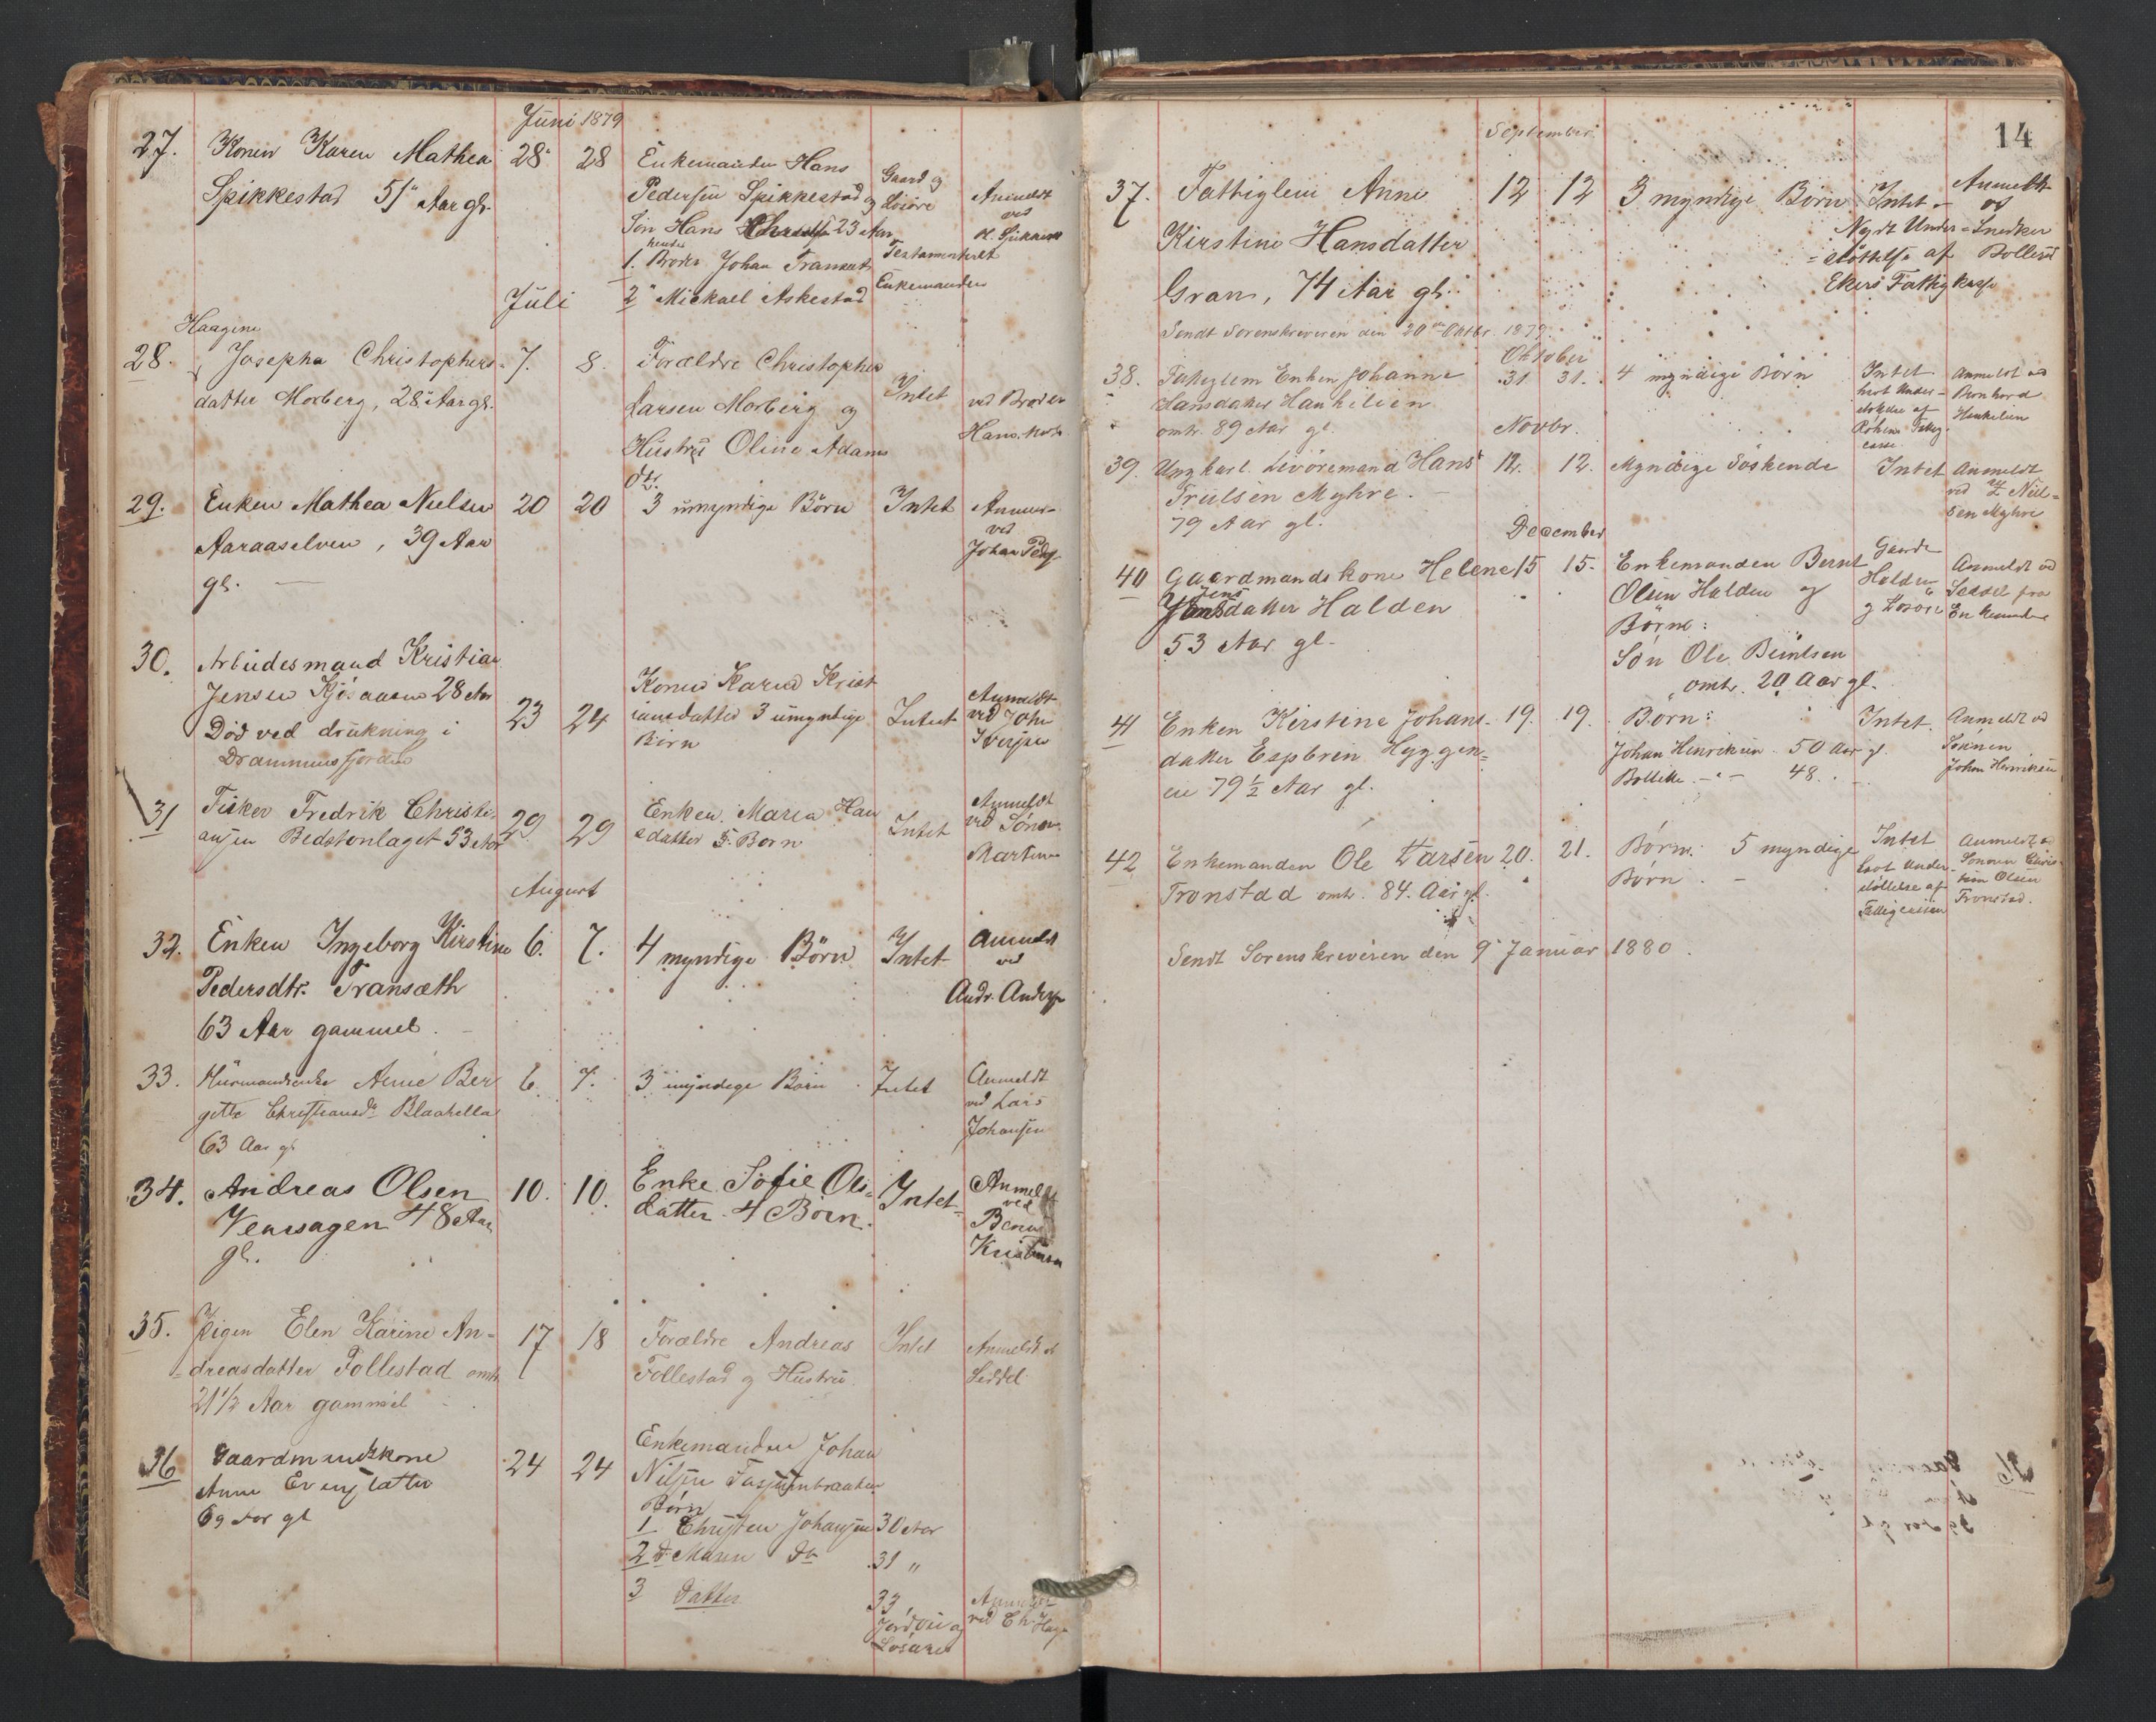 Juni 1879
27. Konen Karen Mathea 28 28 Enkemanden Hans Gaard og
Spikkestad 51 Aar gl. Pedersen Spikkestad og Løsøre Anmeldt
Søn Hans 23 Aar ved
hendes
1. Broder Johan Testamenteret
2 Mickael Askestad Enkemanden
Juli
Haagine
28. Josepha Christophers- 7. 8. Forældre Christopher Intet ved Broder
datter Morberg, 28 Aar gl. Larsen Morberg og Hans
Hustru Oline Adams
dtr.
29. Enken Mathea Nielsen 20 20 3 umyndige Börn Intet
Aaraaselven, 39 Aar ved
gl. Johan
30. Arbeidesmand Kristian
Jensen 28 Aar 23 24 Konen Karen Krist Intet Anmeldt
Död ved drukning i iansdatter 3 umyndige ved
Drammensfjorden Börn Iversen
31 Fisker Fredrik Christi- 29 29 Enken Maren Han Intet Anmeldt
ansen Bedstonlaget 53 Aar sdatter 5 Børn ved Sønen
Martin
August
32. Enken Ingeborg Kirstine 6. 7. 4 myndige Börn Intet Anmeldt
Pedersdtr. Transæth ved
63 Aar gammel. Andr.
33. Huusmandsenke Anne Ber 6. 7. 3 myndige Børn Intet Anmeldt
gitte Christiansdr ved Lars
63 Aar gl Johansen
34. Andreas Olsen 10. 10. Enke Sofie Ols- Intet Anmeldt
48 Aar datter 4 Børn. ved
gl.
35. Pigen Elen Karine An- 17 18 Forældre Andreas Intet Anmeldt
-dreasdatter Follestad omtr Follestad og Hustru Seddel
21 1/2 Aar gammel
36 Gaardmandskone 24 24 Enkemanden Johan
Anne Nilsen
69 Aar gl Børn
1 Christen Johansen 30 Aar
2 Maren 31 "
3 Datter 33
ved Chr.
Løsøre
14
September
37. Fattiglem Anne 12 12 3 myndige Börn Intet - Anmeldt
Kirstine Hansdatter Nydt Under- Snedker
Gran, 74 Aar gl. -støttelse af
Ekers Fattigkasse
Sendt Sorenskriveren den 20de Oktbr. 1879.
Oktober
38. Enken Johanne 31 31. 4 myndige Börn Intet Anmeldt ved
Hansdatter Hankilein
omtr. 89 Aar gl.
Novbr.
39. Ungkarl. Hans 12. 12. Myndige Söskende Intet Anmeldt
Trulsen Myhre. ved
79 Aar gl. -sen Myhre
December
40 Gaardmandskone Helene 15 15. Enkemanden Bernt Gaarden Anmeldt ved
Jensdatter Halden Olsen Halden og Halden Seddel fra
53 Aar gl. Börn: og Løsøre Enkemanden
Søn Ole
omtr. 20 Aar gl.
41 Enken Kirstine Johans- 19. 19. Börn: Intet. Anmeldt ved
datter Espbren Hyggen- Johan Henriksen 50 Aar gl. Sönnen
en 79 1/2 Aar gl. 48. Johan Henriksen
42 Enkemanden Ole Larsen 20. 21. Börn: 5 myndige Intet Anmeldt ved
Tronstad omtr. 84. Aar gl. Börn. havt Under- Sönnen
støttelse af Olsen
Fattigcassen Tronstad.
Sendt Sorenskriveren den 9 Januar 1880.